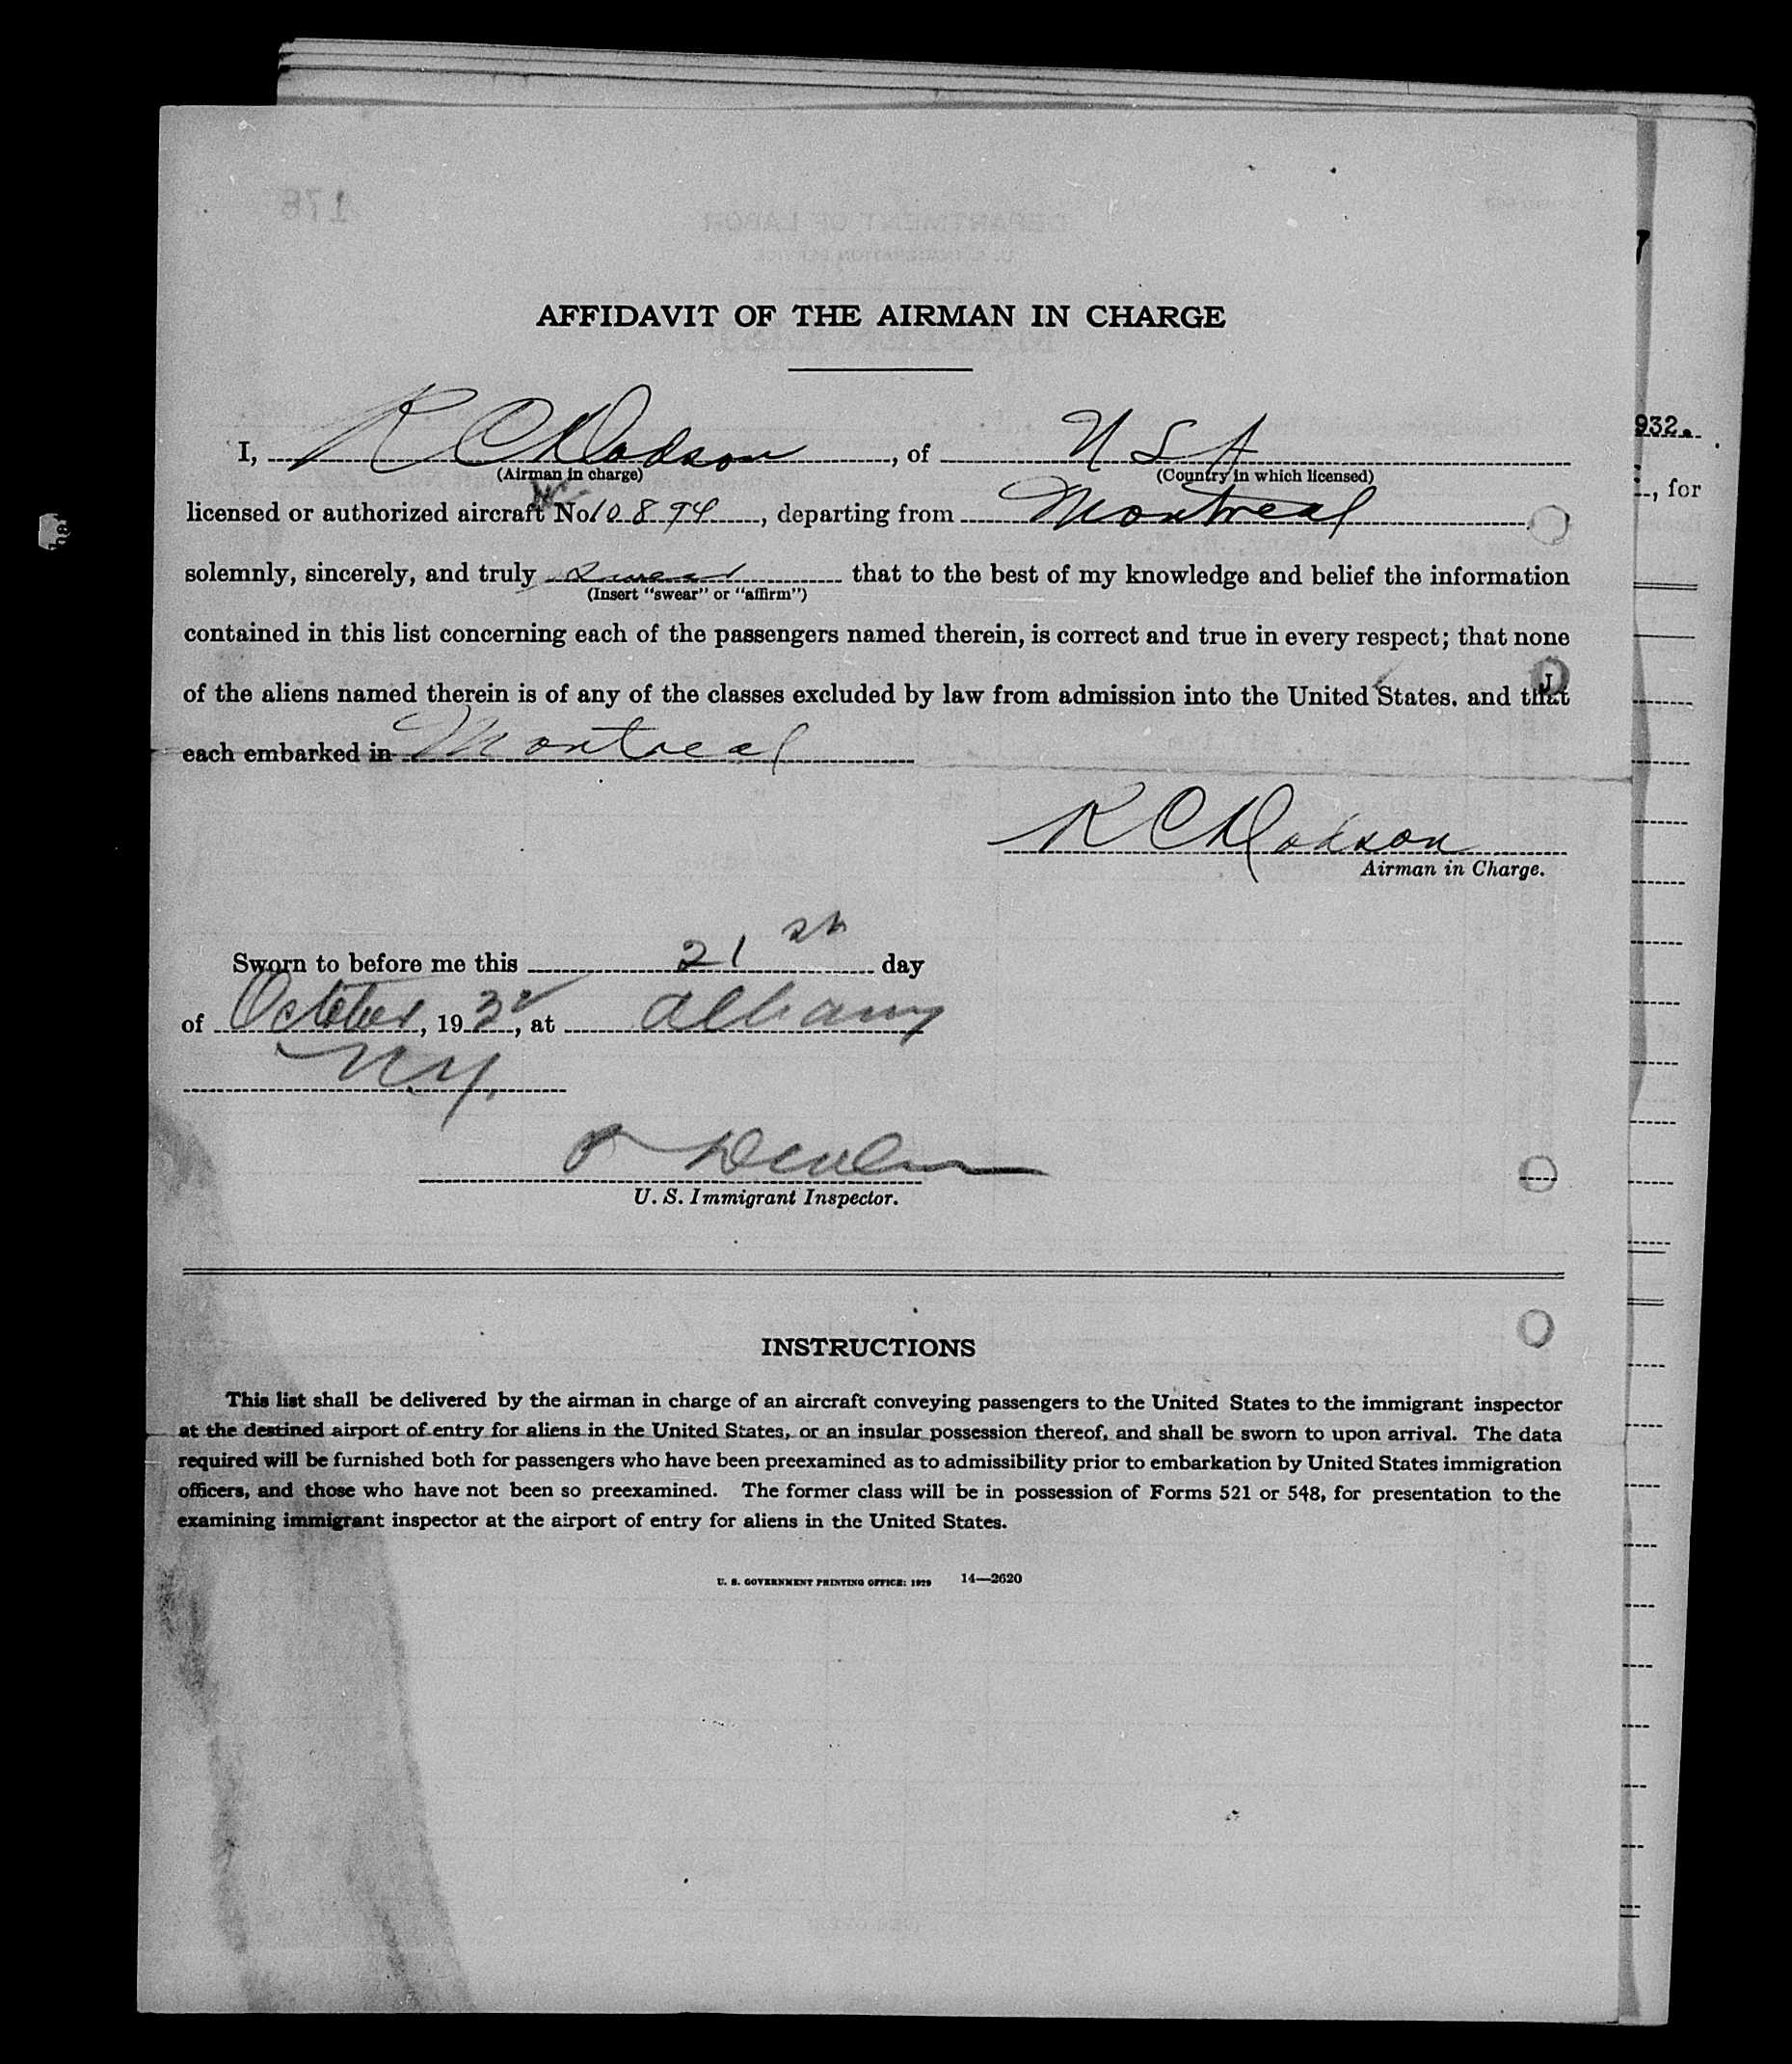 AFFIDAVIT OF THE AIRMAN IN CHARGE
I, R C Dodson, of USA
(Airman in charge) (Country in which licensed)
licensed or authorized aircraft No. NC 10894, departing from Montreal
solemnly, sincerely, and truly swear that to the best of my knowledge and belief the information
(Insert "swear" or "affirm")
contained in this list concerning each of the passengers named therein, is correct and true in every respect; that none
of the aliens named therein is of any of the classes excluded by law from admission into the United States. and that
each embarked in Montreal
R C Dodson
Airman in Charge.
Sworn to before me this 21st day
of October, 1932, at Albany
N.Y.
U. S. Immigrant Inspector.
INSTRUCTIONS
This list shall be delivered by the airman in charge of an aircraft conveying passengers to the United States to the immigrant inspector
at the destined airport of entry for aliens in the United States, or an insular possession thereof, and shall be sworn to upon arrival. The data
required will be furnished both for passengers who have been preexamined as to admissibility prior to embarkation by United States immigration
officers, and those who have not been so preexamined. The former class will be in possession of Forms 521 or 548, for presentation to the
examining immigrant inspector at the airport of entry for aliens in the United States.
U. S. GOVERNMENT PRINTING OFFICE: 1929 14—2620
932.
, for